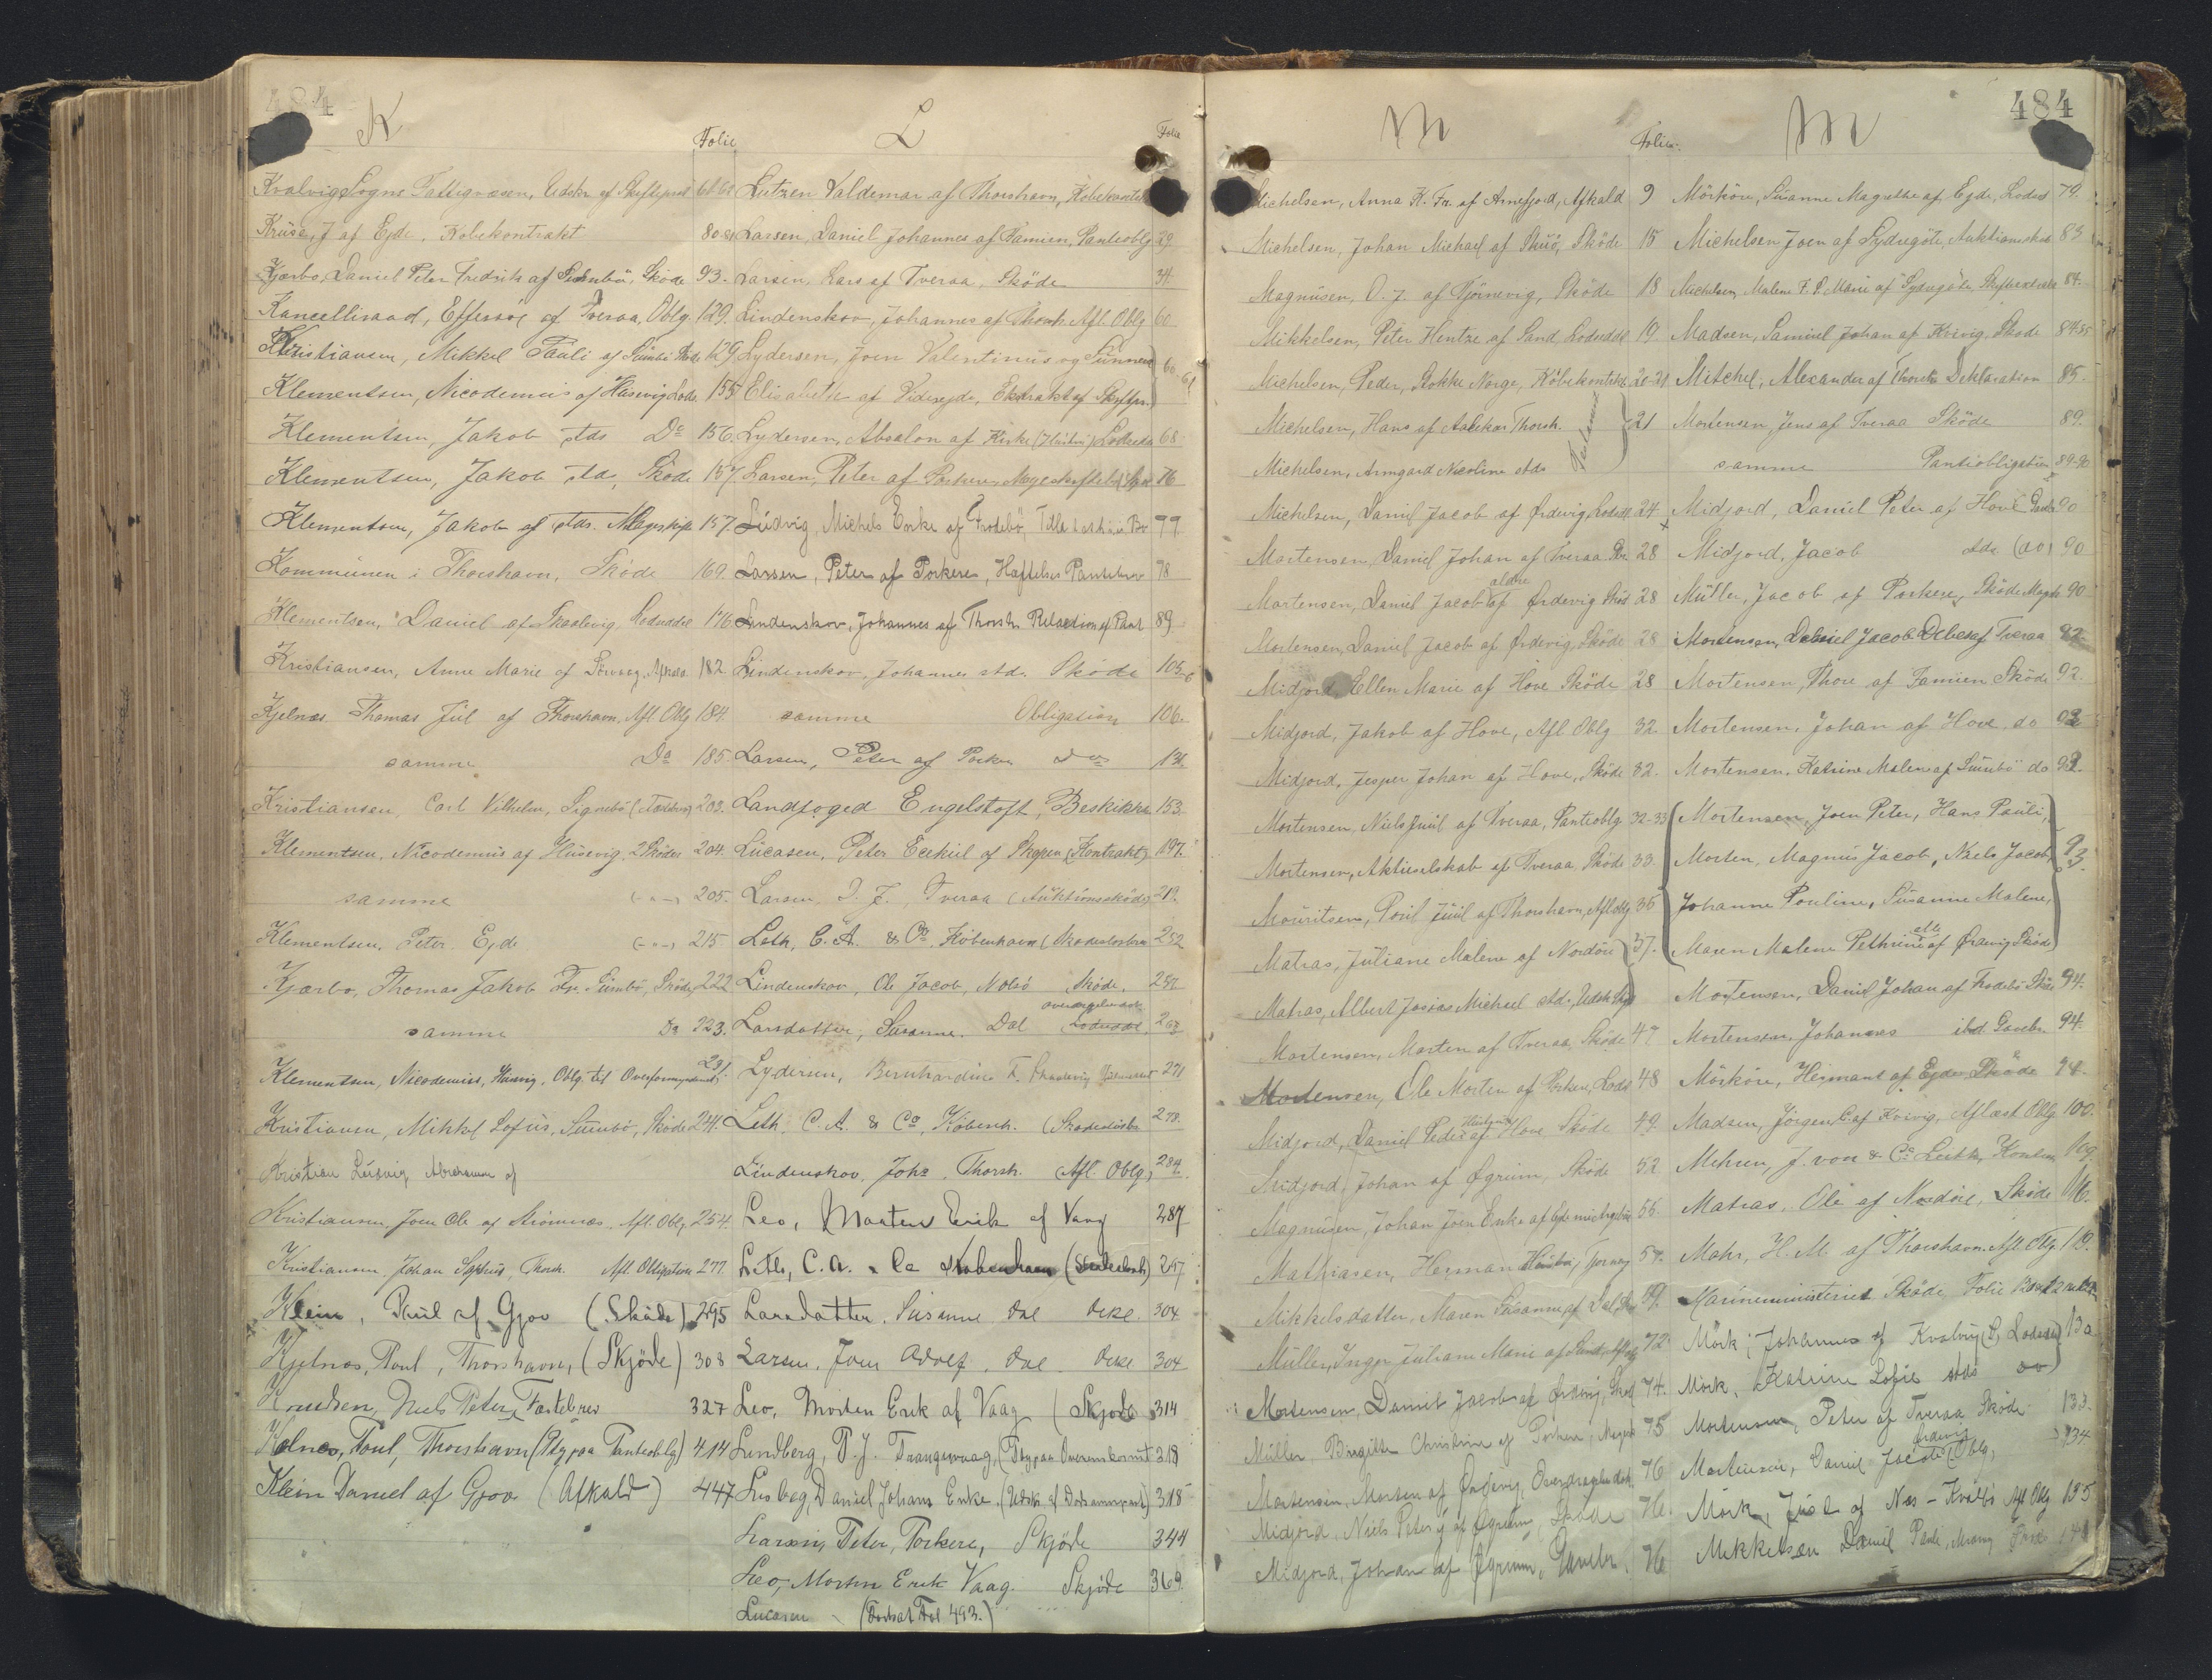 484
K
Folie
Kvalvig Sogns Fattigvæsen, Udskr. af Skiftepro
Kruse, J af Ejde, Kobekontrakt 80
Kjærbo, Daniel Peter Fredrik af Sumbö, Sköde 93.
Kancelliraad, Effersöe af Tveraa, Oblg. 129.
Kristiansen, Mikkel Pauli af Sumbö Sköde 129
Klementsen, Nicodemus af Husevig Lods. 155
Klementsen, Jakob stds Do 156.
Klementsen, Jakob stds, Sköde 157
Klementsen, Jakob af stds. Mageskifte 157
Kommunen i Thorshavn, Sköde 169.
Klementsen, Daniel af Skaalevig, Lodseddel 176
Kristiansen, Anne Marie af Sörvaag, Afkald. 182
Kjelnæs Thomas Jul af Thorshavn, Afl Oblg 184.
samme Do 185.
Kristiansen, Carl Vilhelm, Signebö 203.
Klementsen, Nicodemus af Husevig. 2 Sköder 204.
samme (-"-) 205.
Klementsen, Peter Ejde (-"-) 215
Kjærbo, Thomas Jakob Fr. Sumbö, Sköde, 222
samme Do 223.
Klementsen, Nicodemus, Husevig, Oblg. til Overformynderiet 231.
Kristiansen, Mikkel Sofus, Sumbö, Sköde 241.
Kristian Ludvig Abrahamsen af
Kristiansen, Joen Ole af Strömnæs. Afl. Oblg. 254.
Kristiansen, Johan Sophus, Thorsh. Afl. Obligation 277.
Klein, Paul af Gjov (Sköde) 295
Kjelnæs, Poul, Thorshavn, (Skjöde) 308
Knudsen, Niels Peter, Fæstebrev 327
Kjelnæs, Poul, Thorshavn (Paategn Panteoblg) 414
Klein Daniel af Gjov (Afkald) 447
L
Folie
Lützen Valdemar af Thorshavn, Kobekontrakt
Larsen, Daniel Johannes af Famien, Panteoblg 29
Larsen, Lars af Tveraa, Sköde 34.
Lindenskov, Johannes af Thorsh. Afl. Oblg 60
Lydersen, Joen Valentinus og Sunneva
Elisabeth af Viderejde, Ekstrakt af Skiftpr. 60-61
Lydersen, Absalon af Kirke (Husebö) Lodsedd. 68
Larsen, Peter af Porkere Mageskiftebr. 76
Ludvig, Michels Enke af Frodebö, 77
Larsen, Peter af Porkere, Hæftelses Pantebrev 78
Lindenskov, Johannes af Thorsh. Relaxation af Pant 89
Lindenskov, Johannes std. Sköde 105-6
samme Obligation 106.
Larsen, Peter af Porkere 134.
Landfoged Engelstoft, Beskikkelse 153.
Lucasen, Peter Ezekiel af Skopen (Kontrakt) 197.
Larsen, D. J., Tveraa (Auktionssköde) 219.
Leth, C. A. & Co, København (Skadeslösbr. 232
Lindenskov, Ole Jacob, Nolsö Sköde. 257
Larsdatter, Susanne. Dal 267
Lydersen, Bernhardine F. 271
Leth, C. A. & Co, Københ. (Skadeslösbr. 278.
Lindenskov, Johs. Thorsh. Afl. Oblg, 284.
Leo, Morten Erik af Vaag 287
Leth, C. A. & Co København (Skadeslösb) 287
Larsdatter, Susanne Dal 304
Larsen, Joen Adolf. Dal 304
Leo, Morten Erik af Vaag (Skjöde 314
Lundberg, P. J. Trangisvaag, (Paategn Overenskomst 318
Lisberg, Daniel Johans Enke, (Udsk. af 318
Larsen, Peter, Porkere, Skjöde 344
Leo, Morten Erik Vaag. Skjöde 369
Lucasen (Fortsat Fol 493.)
M
Folie.
Michelsen, Anna K. Fr. af Arnefjord, Afkald 9
Michelsen, Johan Michael af Skuö, Sköde 15
Magnusen, O. J. af Tjörnevig, Sköde 18
Mikkelsen, Peter Hentze af Sand, Lodseddel 19.
Michelsen, Peder, Stokke Norge, Köbekontrkt 20-21
Michelsen, Hans af Thorsh. 21
Michelsen, Armgard Nicoline stds
Michelsen, Daniel Jacob af Ördevig, Lodsedd 24
Mortensen, Daniel Johan af Tveraa 28
Mortensen, Daniel Jacob ældre af Ördevig Sköd 28
Mortensen, Daniel Jacob af Ördevig, Sköde 28
Midjord, Ellen Marie af Hove Sköde 28
Midjord, Jakob af Hove, Afl Oblg 32.
Midjord, Jesper Johan af Hove, Sköde 32.
Mortensen, Niels Juul af Tveraa, Panteoblg 32-33
Mortensen, Aktieselskab af Tveraa, Sköde 33.
Mouritsen, Poul Juul af Thorshavn, Afl. Oblg 36
Matras, Juliane Malene af Nordöre 37.
Matras, Albert Josias Michael std.
Mortensen, Morten af Tveraa, Sköde 47
Mortensen, Ole Morten af Porkere, Lods 48
Midjord, Daniel Peder af Hove Sköde 49
Midjord, Johan af Øgrum, Sköde 52
Magnusen, Johan Joen Enke af 56.
Mathiasen, Herman 57.
Mikkelsdatter, Maren Susanne af Dal, 69.
Müller, Inger Juliane Marie af 72
Mortensen, Daniel Jacob af Ördevig, Sköd 74.
Müller, Birgitte Christine af Porkere, 75
Mortensen, Morten af Ördevig, 76
Midjord, Niels Peter af Øgrum, Sköde 76.
Midjord, Johan af Øgrum, 76
M
484
Mörköre, Susanne Magrethe af Ejde, Lodsed 79.
Michelsen Joen af Sydregöte, Auktionssköd 83
Michelsen, Malene F. P. Marie af Sydregöte, 84.
Madsen, Samuel Johan af Kvivig, Sköde 84-85
Mitchel, Alexander af Thorsh. Deklaration 85.
Mortensen, Jens af Tveraa Sköde 89.
samme Panteobligation 89-90
Midjord, Daniel Peter af Hove 90
Midjord, Jacob stds (do) 90
Müller, Jacob af Porkere, Sköde 90
Mortensen, Daniel Jacob Debes af Tveraa 92
Mortensen, Thore af Famien Sköde 92.
Mortensen, Johan af Hove do 93
Mortensen, Katrine Malene af Sumbö do 93.
Mortensen, Joen Peter, Hans Pauli,
Morten, Magnus Jacob, Niels Jacob, 93.
Johanne Pouline, Susanne Malene,
Maren Malene Pethrine alle af Ördevig Sköde
Mortensen, Daniel Johan af Frodebö Sköde 94.
Mortensen, Johannes ibd Gavebr. 94.
Mörköre, Hermann af Ejde Sköde 98.
Madsen, Jörgen C. af Kvivig, Aflæst Oblg. 100.
Mehren, J. von & Co. Leith, 109
Matras, Ole af Nordöre, Sköde 116.
Mohr, H. M. af Thorshavn. Afl. Oblg. 119.
Marineministeriet Sköde, Folie
Mörk, Johannes af Kvalvig, Lodsed 130
Mörk, Katrine Sofie stds do
Mortensen, Peter af Tveraa Sköde 133.
Mortensen, Daniel Jacob Ördevig (Oblg, 134
Mörk, Just af Næs - Kvalbö Afl Oblg 135
Mikkelsen Daniel